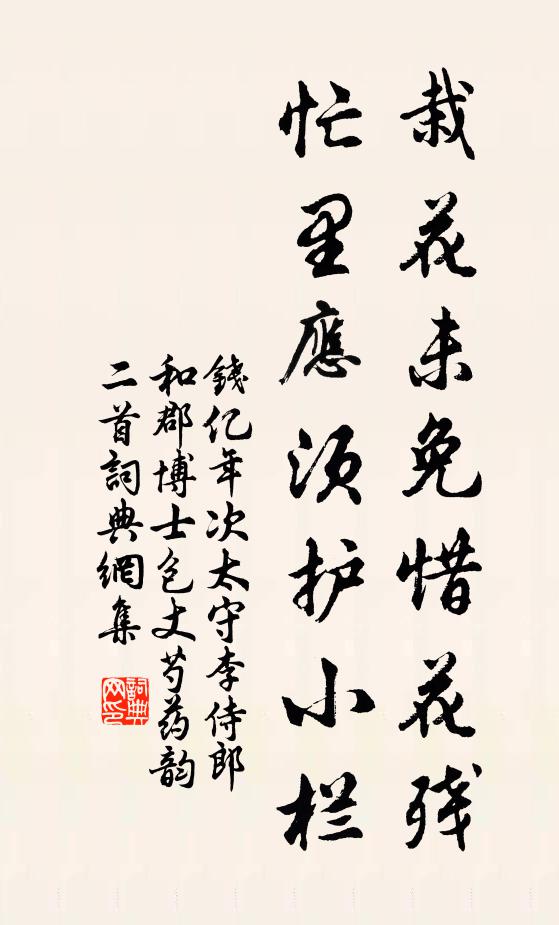 栽花未免惜花残
忙里應须护小栏
錢亿年次太守李侍郎
和郡博士包丈芍药韵
二首詞典網集
詞典
网印